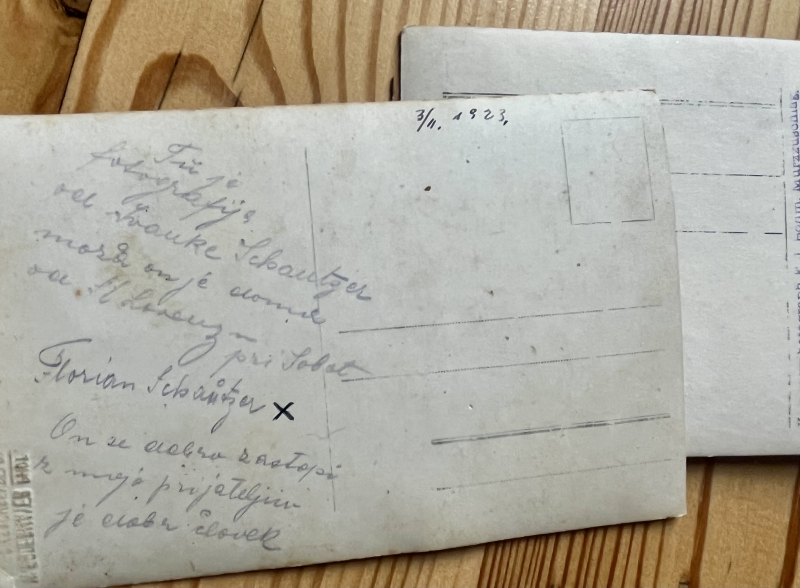 3/II. 1923,
Tu je
fotografija
od Švauke Schautzer
mora on je doma
od St Lorenzn
pri Sobot
Florian Schautzer X
On se dobro zastopi
z mojo prijateljin
je dober človek